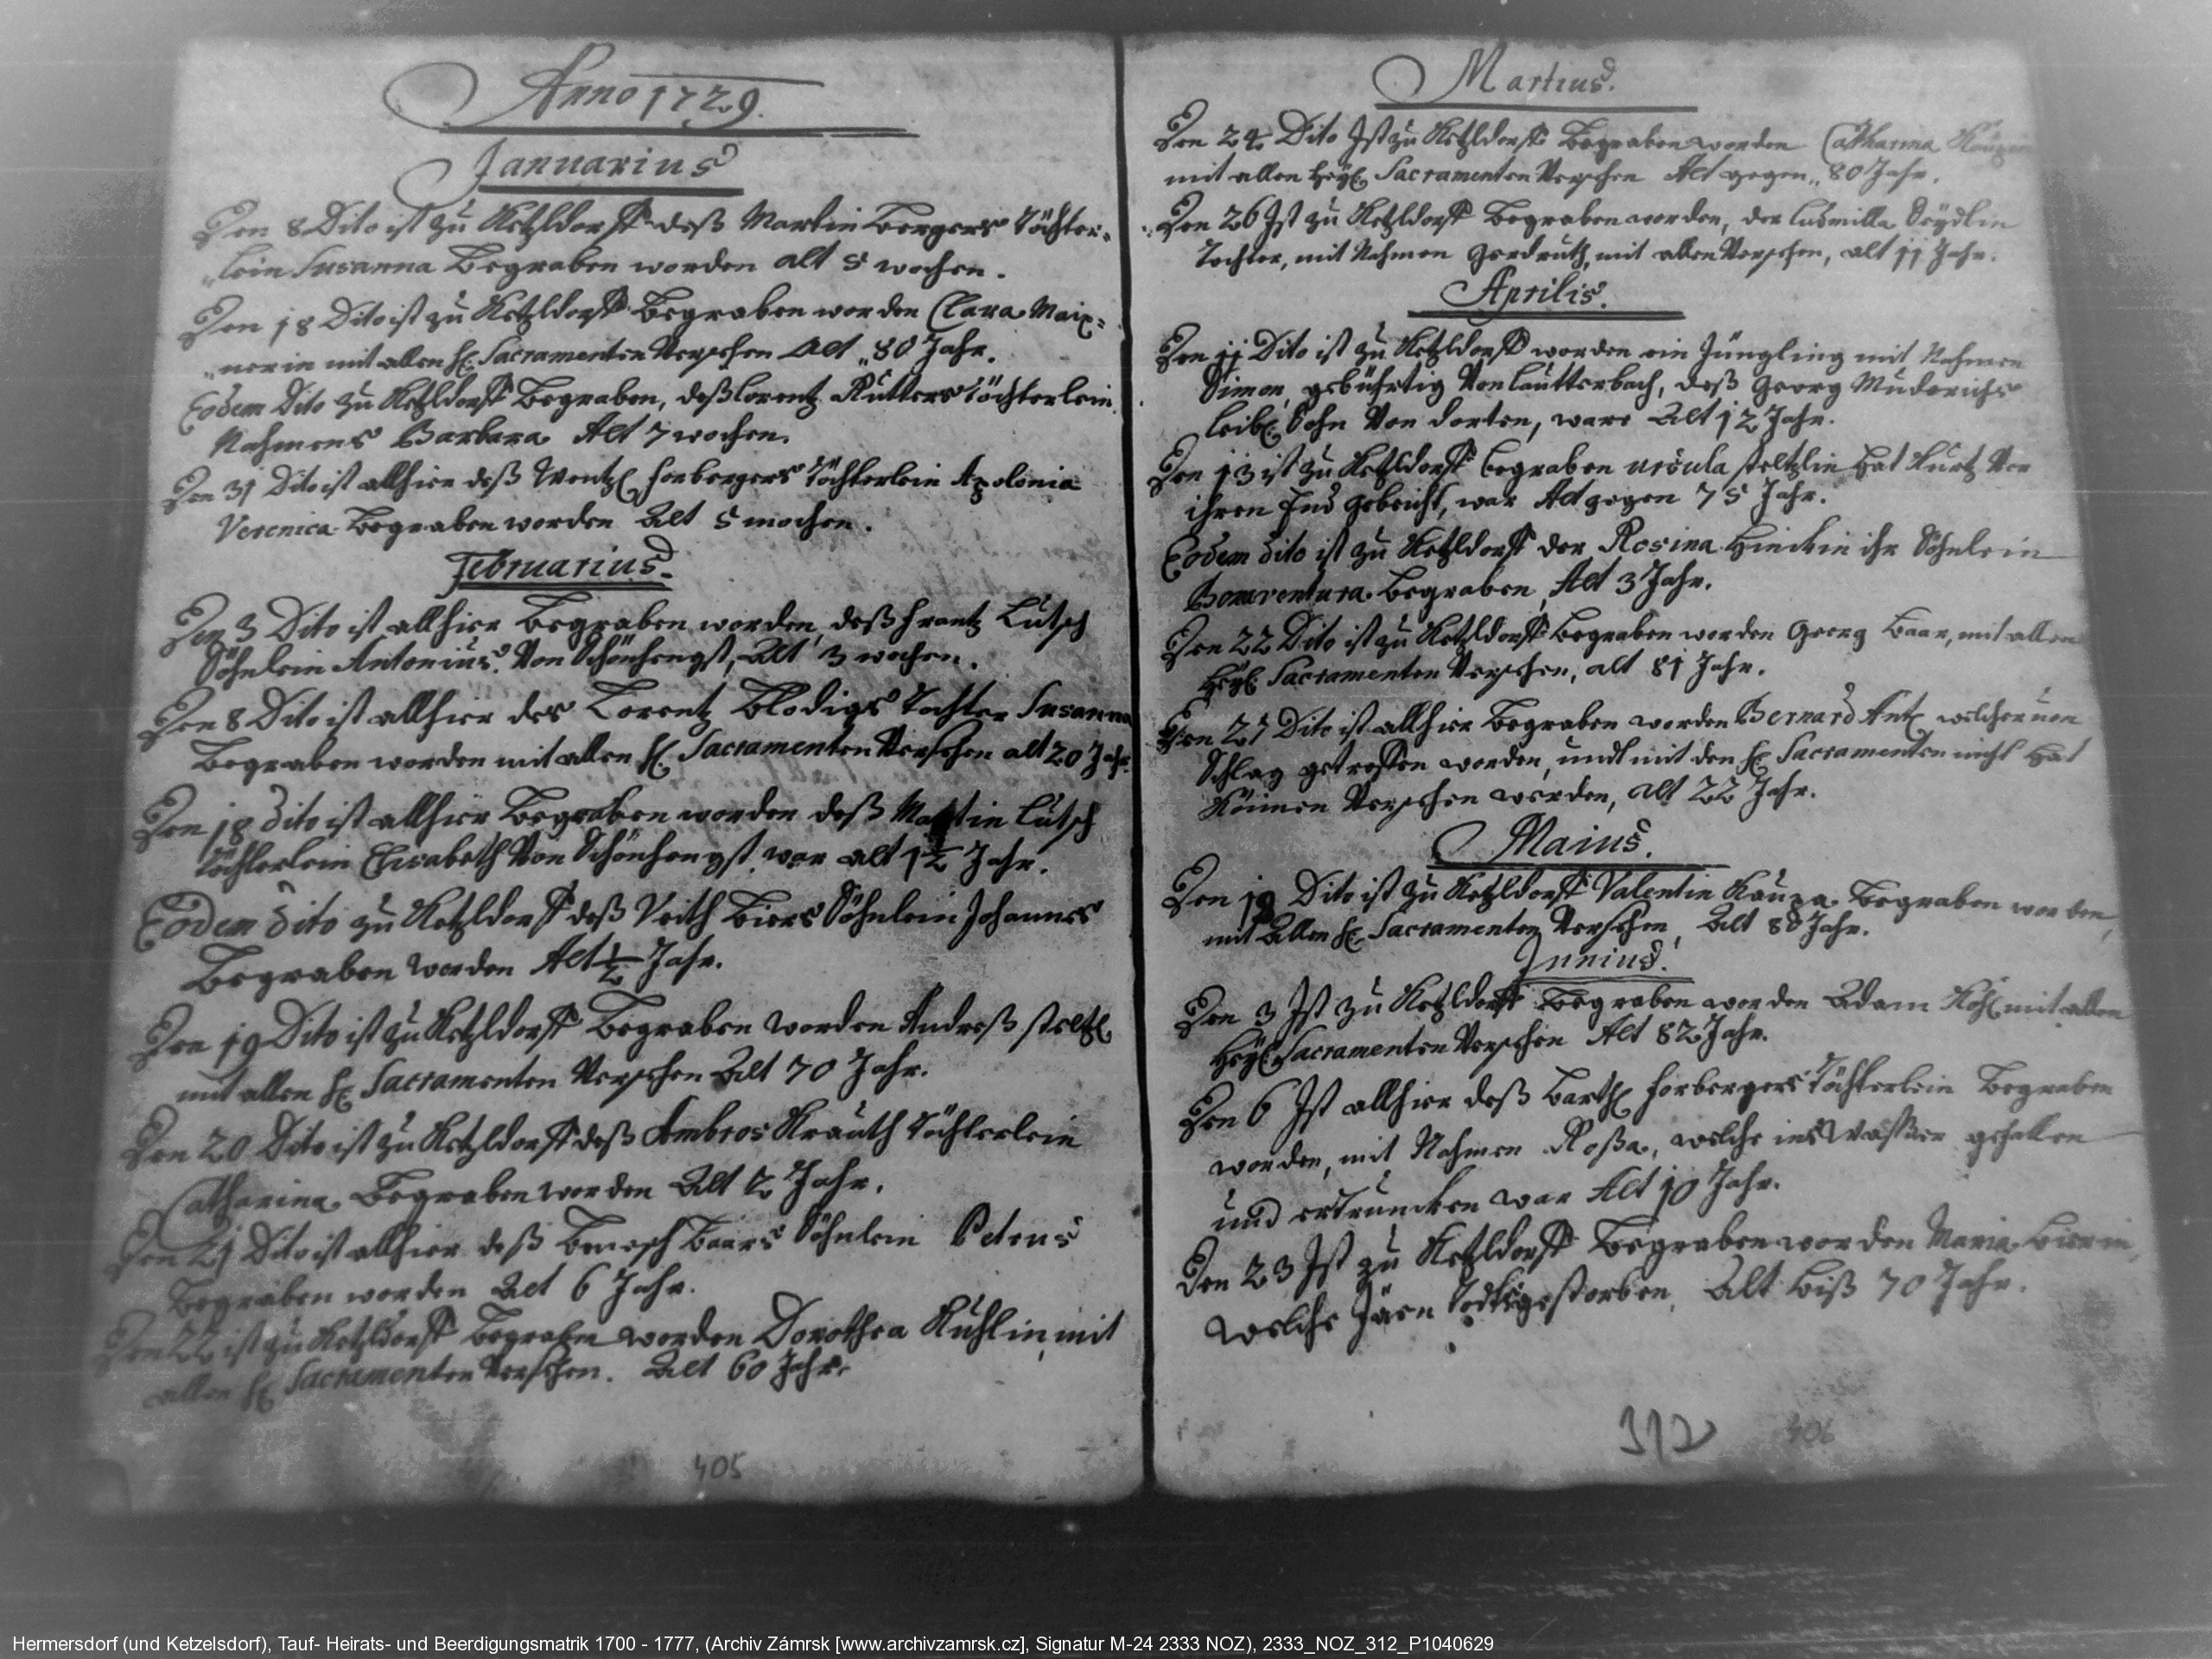 Anno 1729.
Januarius
Den 8 Dito ist zu Ketzldorff deß Martin Bergers Töchter-
lein Susanna Begraben worden alt 5 wochen.
Den 18 Dito ist zu Ketzldorff Begraben worden Clara Maix=
nerin mit allen hl. Sacramenten Versehen Alt 80 Jahr.
Eodem Dito zu Ketzldorff Begraben, deß Lorentz Rutters Töchterlein
Nahmens Barbara Alt 7 wochen.
Den 31 Dito ist allhier deß Wentzl Forbergers Töchterlein Apolonia
Veronica Begraben worden Alt 5 wochen.
Februarius.
Den 3 Dito ist allhier Begraben worden, deß Frantz Lutsch
Söhnlein Antonius Von Schönhengst, Alt 3 wochen.
Den 8 Dito ist allhier des Lorentz Blodigs Tochter Susanna
Begraben worden mit allen hl. Sacramenten Versehen alt 20 Jahr.
Den 18 Dito ist allhier Begraben worden deß Martin Lutsch
Töchterlein Elisabeth Von Schönhengst, war alt 1½ Jahr.
Eodem Dito zu Ketzldorff deß Veith Biers Söhnlein Johannes
Begraben worden Alt ½ Jahr.
Den 19 Dito ist zu Ketzldorff Begraben worden Andreß Steltzl
mit allen hl. Sacramenten Versehen Alt 70 Jahr.
Den 20 Dito ist zu Ketzldorff deß Ambros Krauth Töchterlein
Catharina Begraben worden Alt 2 Jahr.
Den 21 Dito ist allhier deß Benesch Baars Söhnlein Petrus
Begraben worden Alt 6 Jahr.
Den 22 ist zu Ketzldorff Begraben worden Dorothea Kuhlin, mit
allen hl. Sacramenten Versehen. Alt 60 Jahr.
405
Martius.
Den 24 Dito Ist zu Ketzldorff Begraben worden Catharina
mit allen Heyl. Sacramenten Versehen Alt gegen 80 Jahr.
Den 26 Ist zu Ketzldorff Begraben worden, der Ludmilla Seydlin
Tochter, mit Nahmen Gerdruth, mit allen Versehen, alt 11 Jahr.
Aprilis.
Den 11 Dito ist zu Ketzldorff worden ein Jüngling mit Nahmen
Simon, gebührtig Von Lautterbach, deß Georg Muderichs
leibl. Sohn Von dorten, ware Alt 12 Jahr.
Den 13 ist zu Ketzldorff begraben Ursula Steltzlin hat Kurtz Vor
ihren End gebeicht, war Alt gegen 75 Jahr.
Eodem dito ist zu Ketzldorff der Rosina Hinckin ihr Söhnlein
Bonaventura Begraben, Alt 3 Jahr.
Den 22 Dito ist zu Ketzldorff Begraben worden Georg Baar, mit allen
Heyl. Sacramenten Versehen, alt 81 Jahr.
Den 27 Dito ist allhier Begraben worden Bernard Antl welcher von
Schlag getroffen worden, undt mit den hl. Sacramenten nicht hat
Können Versehen werden, alt 22 Jahr.
Maius.
Den 19 Dito ist zu Ketzldorff Valentin Kaupa Begraben worden,
mit Allen hl. Sacramenten Versehen, Alt 80 Jahr.
Junius.
Den 3 Ist zu Ketzldorff Begraben worden Adam Kohl mit allen
Heyl. Sacramenten Versehen Alt 82 Jahr.
Den 6 Ist allhier deß Barthl Forbergers Töchterlein Begraben
worden, mit Nahmen Roßa, welche ins Waßer gefallen
und ertruncken war Alt 10 Jahr.
Den 23 Ist zu Ketzldorff Begraben worden Maria Bierin,
welche Jäen Todts gestorben, Alt biß 70 Jahr.
312
406
Hermersdorf (und Ketzelsdorf), Tauf- Heirats- und Beerdigungsmatrik 1700 - 1777, (Archiv Zámrsk [www.archivzamrsk.cz], Signatur M-24 2333 NOZ), 2333_NOZ_312_P1040629